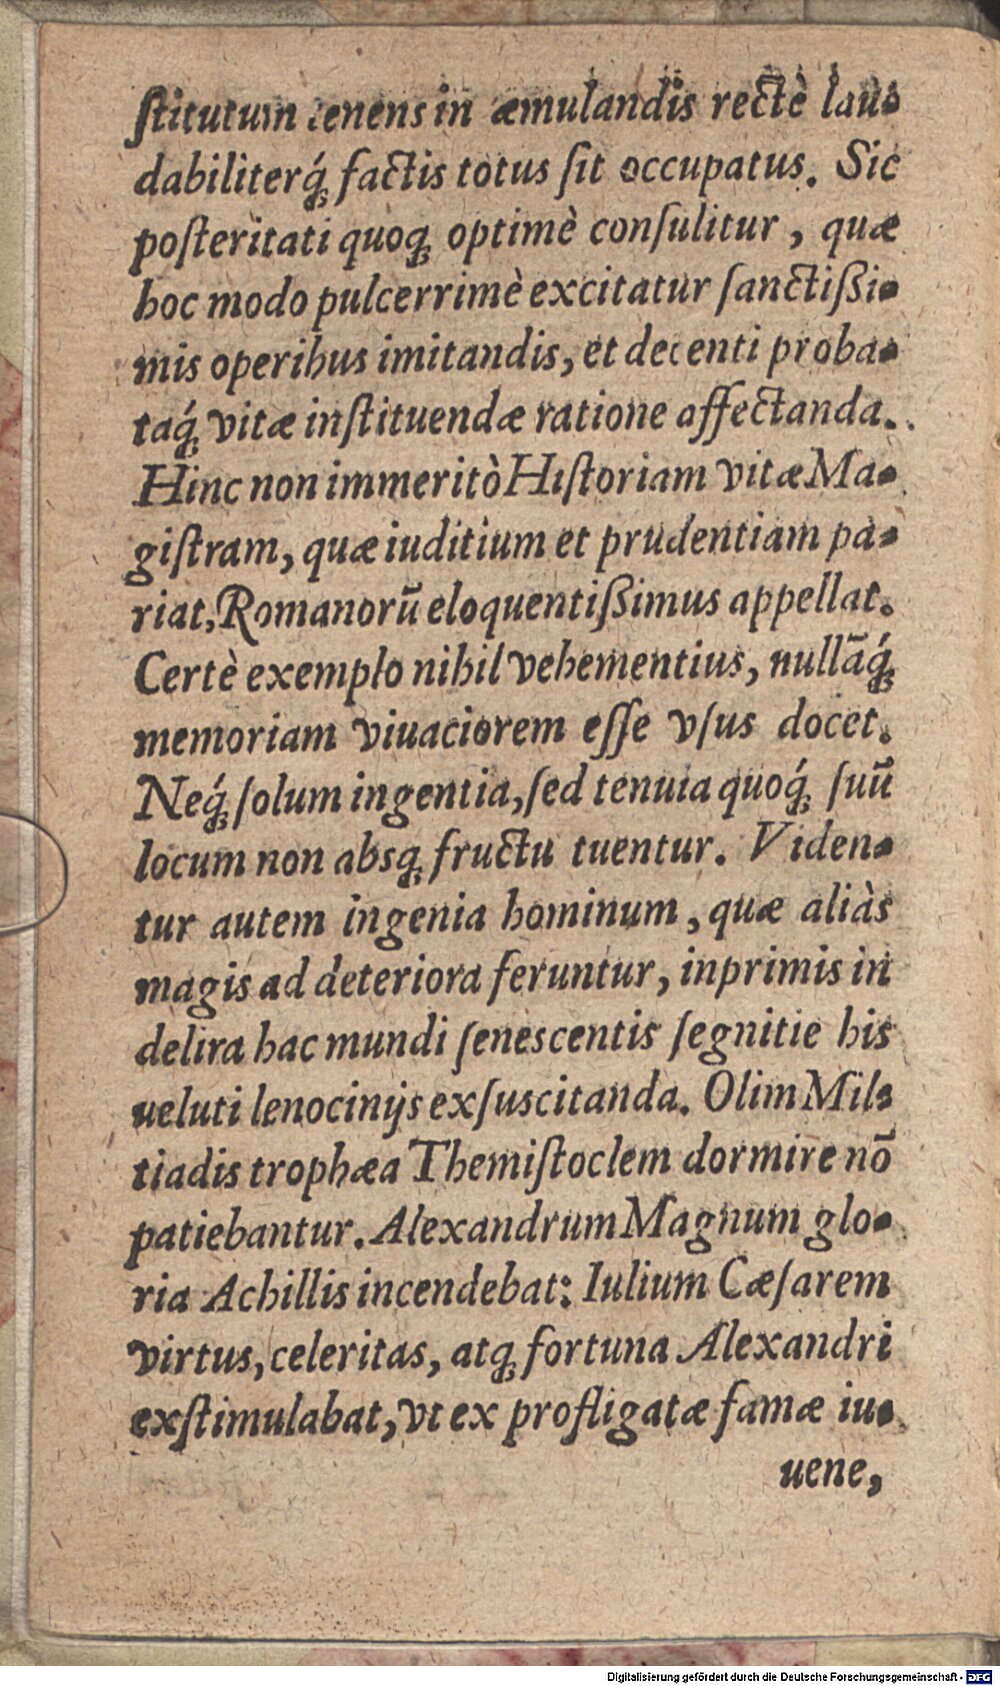 ſtitutum tenens in æmulandis rectè lau-
dabiliterq́; factis totus ſit occupatus. Sic
poſteritati quoq; optimè conſulitur, quæ
hoc modo pulcerrimè excitatur ſanctißi-
mis operibus imitandis, et decenti proba-
taq́; vitæ inſtituendæ ratione affectanda.
Hinc non immeritò Hiſtoriam vitæ Ma-
giſtram, quæ iuditium et prudentiam pa-
riat, Romanorū eloquentißimus appellat.
Certè exemplo nihil vehementius, nullāq́;
memoriam viuaciorem eſſe vſus docet.
Neq́; ſolum ingentia, ſed tenuia quoq́; ſuū
locum non absq; fructu tuentur. Viden-
tur autem ingenia hominum, quæ aliàs
magis ad deteriora feruntur, inprimis in
delira hac mundi ſenescentis ſegnitie his
ueluti lenocinijs exſuscitanda. Olim Mil-
tiadis trophæa Themiſtoclem dormire nō
patiebantur. Alexandrum Magnum glo-
ria Achillis incendebat: Iulium Cæſarem
virtus, celeritas, atq; fortuna Alexandri
exſtimulabat, vt ex profligatæ famæ iu-
uene,
Digitalisierung gefördert durch die Deutsche Forschungsgemeinschaft - DFG